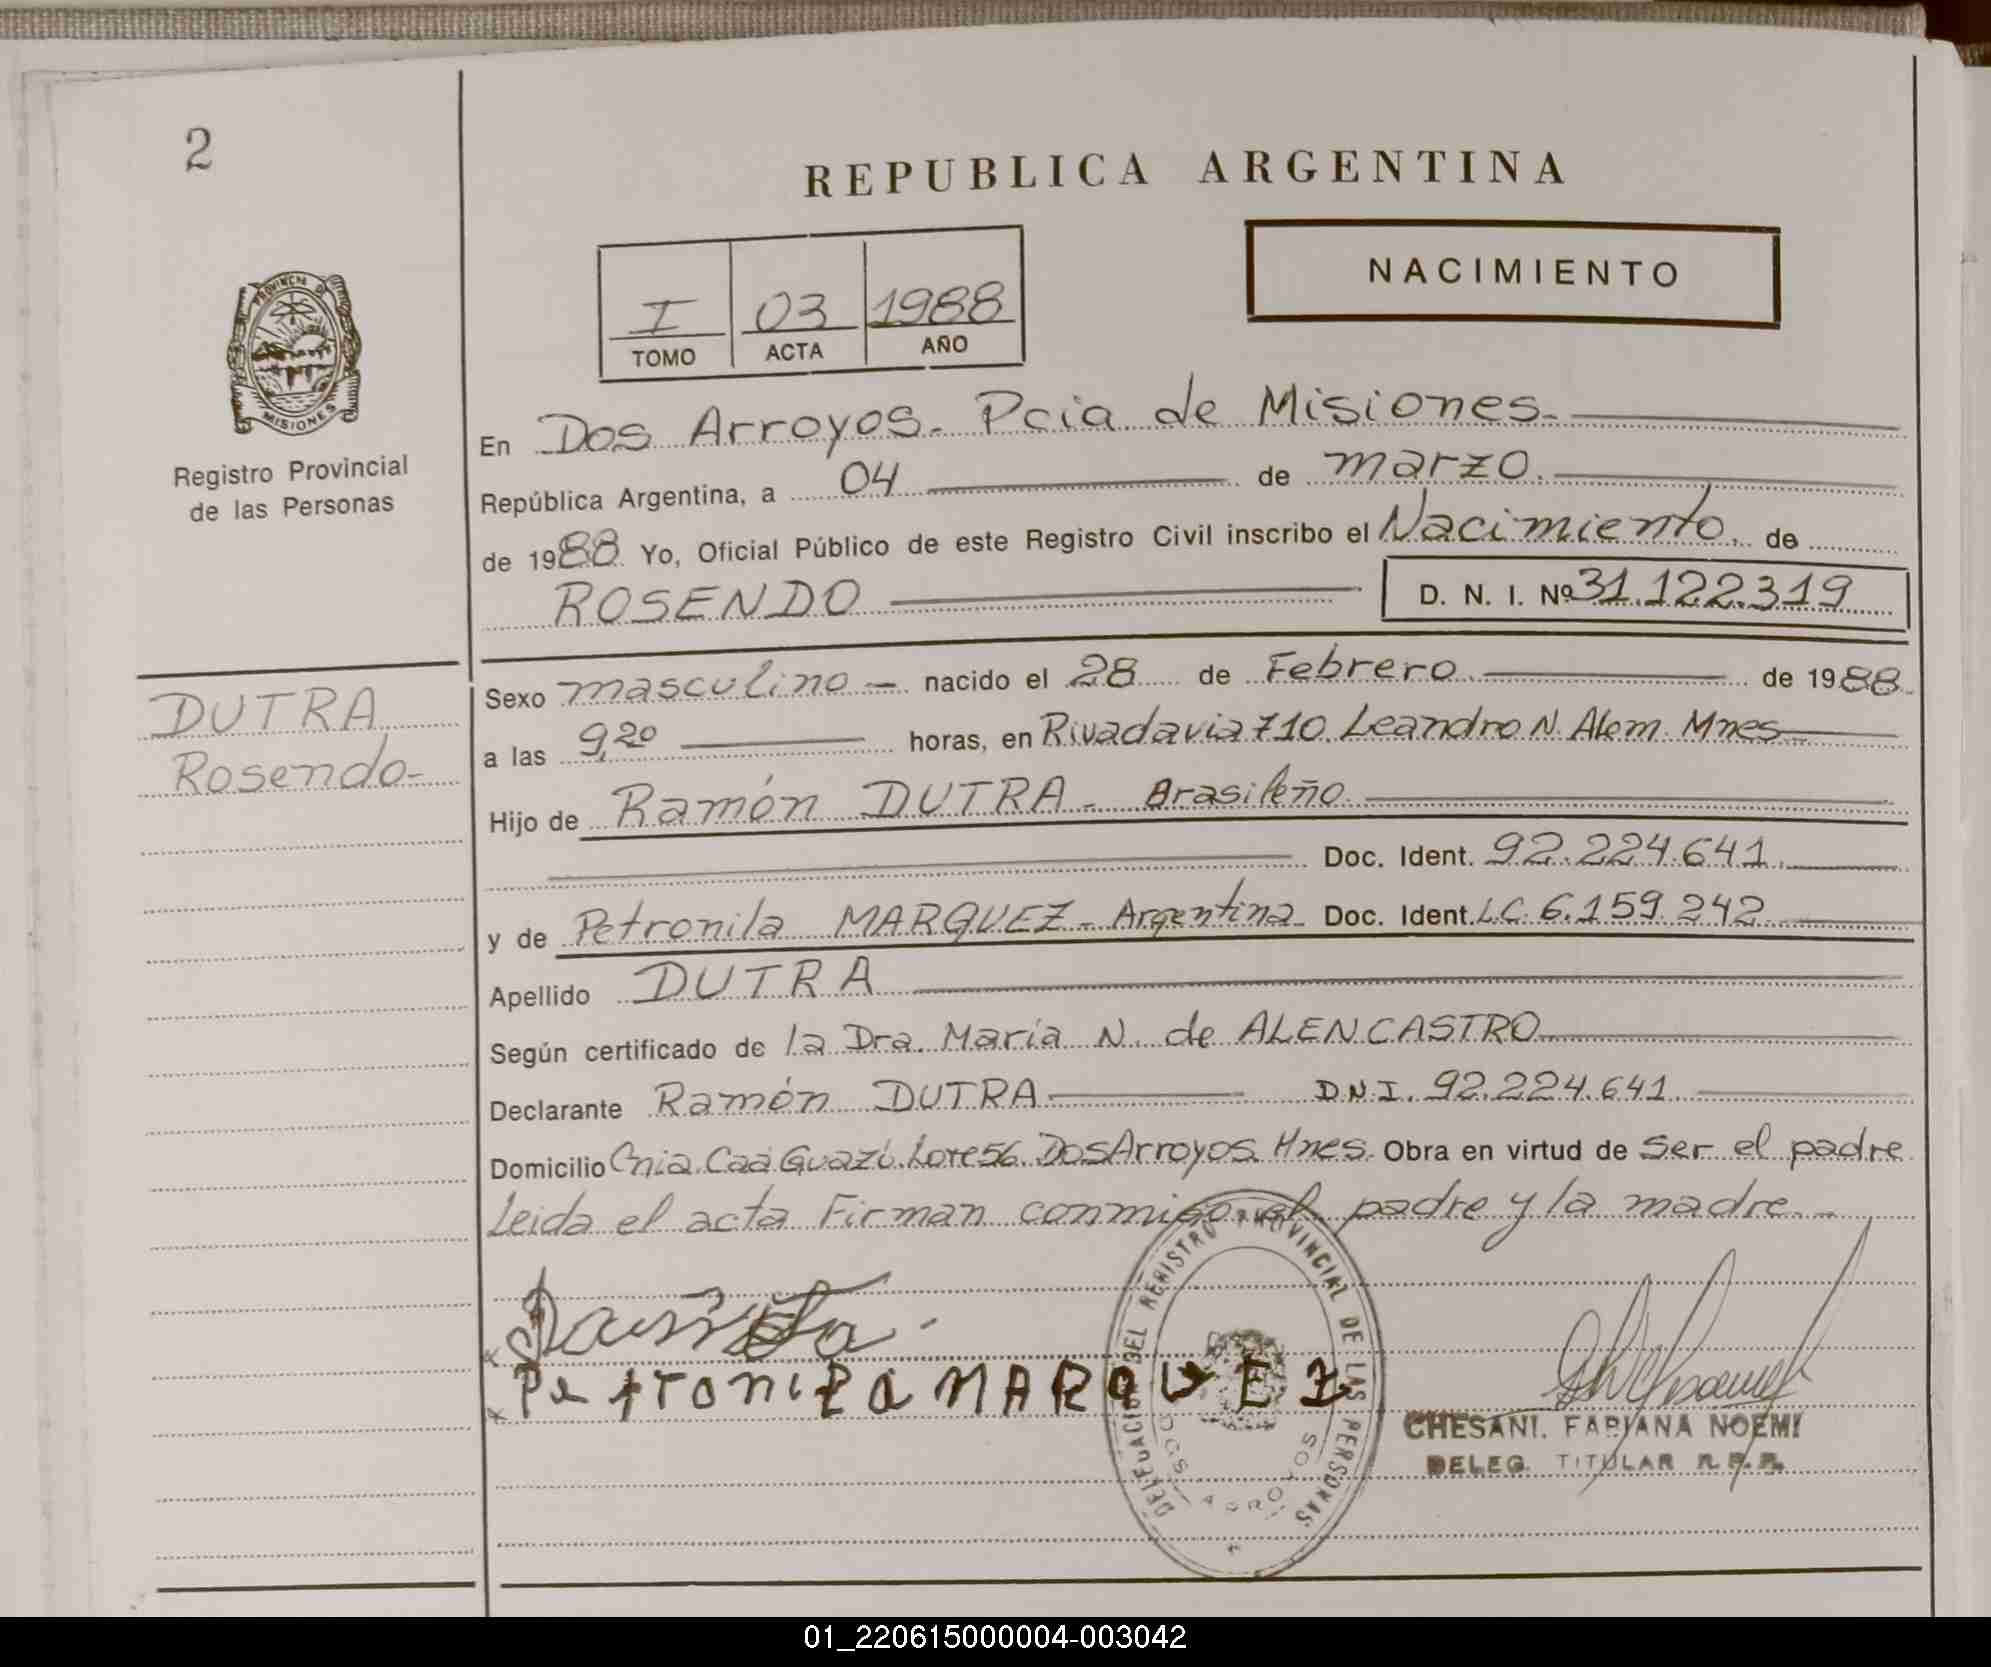 2
REPUBLICA ARGENTINA
NACIMIENTO
I 03 1988
TOMO ACTA AÑO
PROVINCIA DE MISIONES
Registro Provincial
de las Personas
En Dos Arroyos. Pcia de Misiones.
República Argentina, a 04 de marzo.
de 1988 Yo, Oficial Público de este Registro Civil inscribo el Nacimiento. de
ROSENDO D. N. I. Nº 31.122.319
DUTRA
Rosendo-
Sexo masculino - nacido el 28 de Febrero de 1988
a las 9,20 horas, en Rivadavia 710 Leandro N. Alem. Mnes
Hijo de Ramón DUTRA - Brasileño
Doc. Ident. 92.224.641
y de Petronila MARQUEZ - Argentina Doc. Ident. L.C. 6.159.242
Apellido DUTRA
Según certificado de la Dra. María N. de ALENCASTRO
Declarante Ramón DUTRA D.N.I. 92.224.641
Domicilio Cnia. Caá Guazú. Lote 56. Dos Arroyos. Mnes. Obra en virtud de ser el padre
Leída el acta Firman conmigo el padre y la madre.-
PetroniLa MARQUEZ
DELEGACION DEL REGISTRO PROVINCIAL DE LAS PERSONAS
DOS ARROYOS
CHESANI, FABIANA NOEMI
DELEG. TITULAR R.P.P.
01_220615000004-003042